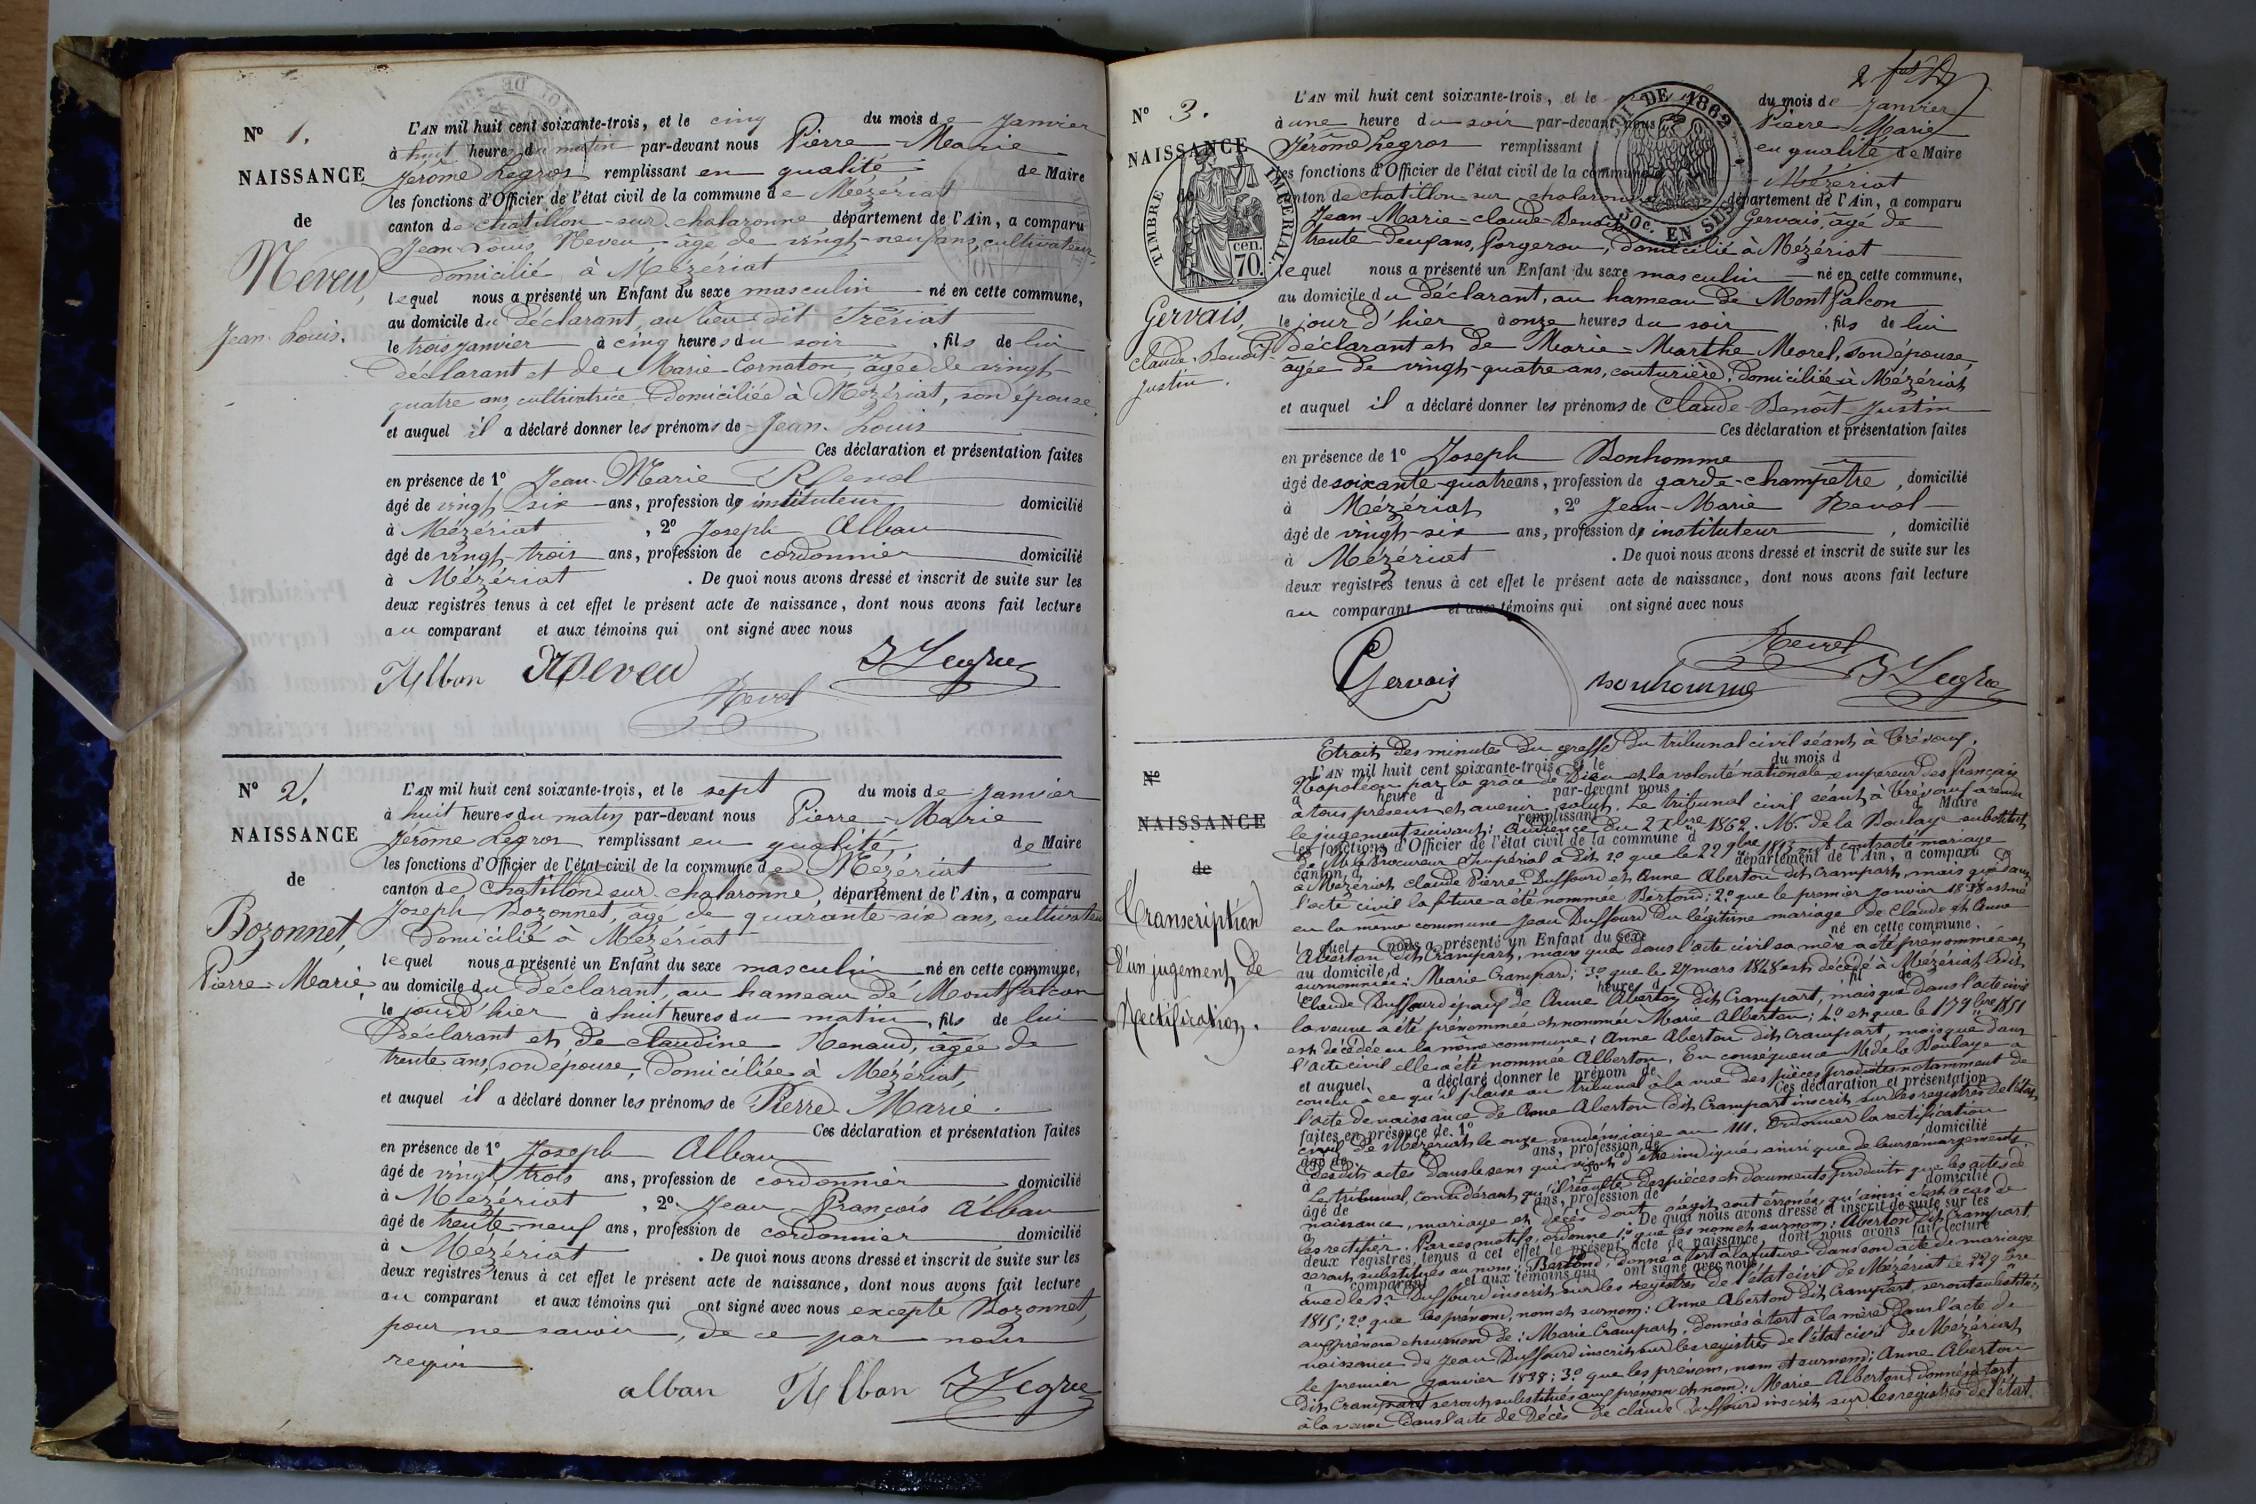 N° 1.
NAISSANCE
de
Neveu,
Jean-Louis.
L'AN mil huit cent soixante-trois, et le cinq du mois de Janvier
à huit heures du matin par-devant nous Pierre-Marie
Jérome Legros remplissant en qualité de Maire
les fonctions d'Officier de l'état civil de la commune de Mézériat
canton de chatillon-sur-chalaronne département de l'Ain, a comparu
Jean-Louis Neveu, âgé de vingt-neuf ans, cultivateur,
domicilié à Mézériat
lequel nous a présenté un Enfant du sexe masculin né en cette commune,
au domicile du déclarant, au lieu dit Trériat
le trois janvier à cinq heures du soir, fils de lui
déclarant et de Marie Cornaton, âgée de vingt-
quatre ans, cultivatrice, domiciliée à Mézériat, son épouse,
et auquel il a déclaré donner les prénoms de Jean-Louis
Ces déclaration et présentation faites
en présence de 1° Jean-Marie Revol
âgé de vingt six ans, profession de instituteur domicilié
à Mézériat, 2° Joseph Alban
âgé de vingt-trois ans, profession de cordonnier domicilié
à Mézériat. De quoi nous avons dressé et inscrit de suite sur les
deux registres tenus à cet effet le présent acte de naissance, dont nous avons fait lecture
au comparant et aux témoins qui ont signé avec nous
Alban Neveu Revol J Legros
N° 2.
NAISSANCE
de
Bozonnet,
Pierre-Marie
L'AN mil huit cent soixante-trois, et le sept du mois de Janvier
à huit heures du matin par-devant nous Pierre-Marie
Jérôme Legros remplissant en qualité de Maire
les fonctions d'Officier de l'état civil de la commune de Mézériat
canton de Chatillon sur chalaronne, département de l'Ain, a comparu
Joseph Bozonnet, âgé de quarante-six ans, cultivateur
domicilié à Mézériat
lequel nous a présenté un Enfant du sexe masculin né en cette commune,
au domicile du déclarant, au hameau de Montfalcon
le jour d'hier à huit heures du matin, fils de lui
déclarant et de Claudine Renaud, âgée de
trente ans, son épouse, domiciliée à Mézériat,
et auquel il a déclaré donner les prénoms de Pierre-Marie.
Ces déclaration et présentation faites
en présence de 1° Joseph Alban
âgé de vingt trois ans, profession de cordonnier domicilié
à Mézériat, 2° Jean François Alban
âgé de trente-neuf ans, profession de cordonnier domicilié
à Mézériat. De quoi nous avons dressé et inscrit de suite sur les
deux registres tenus à cet effet le présent acte de naissance, dont nous avons fait lecture
au comparant et aux témoins qui ont signé avec nous excepté Bozonnet,
pour ne savoir, de ce par nous
requis.
alban Alban J Legros
N° 3.
NAISSANCE
de
TIMBRE IMPÉRIAL
cen.
70.
Gervais,
Claude-Benoît
Justin.
DE 1862
50c. EN SUS
L'AN mil huit cent soixante-trois, et le du mois de Janvier
à une heure du soir par-devant nous Pierre Marie
Jérôme Legros remplissant en qualité de Maire
les fonctions d'Officier de l'état civil de la commune Mézériat
canton de chatillon sur chalaronne département de l'Ain, a comparu
Jean-Marie-claude-Benoît Gervais, âgé de
trente-deux ans, forgeron, domicilié à Mézériat
lequel nous a présenté un Enfant du sexe masculin né en cette commune,
au domicile du déclarant, au hameau de Montfalcon
le jour d'hier à onze heures du soir, fils de lui
déclarant et de Marie-Marthe Morel, son épouse,
âgée de vingt-quatre ans, couturière, domiciliée à Mézériat
et auquel il a déclaré donner les prénoms de Claude-Benoît-Justin
Ces déclaration et présentation faites
en présence de 1° Joseph Bonhomme
âgé de soixante-quatre ans, profession de garde-champêtre, domicilié
à Mézériat, 2° Jean-Marie Revol
âgé de vingt-six ans, profession de instituteur, domicilié
à Mézériat. De quoi nous avons dressé et inscrit de suite sur les
deux registres tenus à cet effet le présent acte de naissance, dont nous avons fait lecture
au comparant et aux témoins qui ont signé avec nous
Gervais Bonhomme Revol J Legros
N°
NAISSANCE
de
Transcription
d'un jugement de
Rectification.
Etrait des minutes du greffe du tribunal civil séant à Trévoux.
L'AN mil huit cent soixante-trois, et le du mois d
Napoléon par la grâce de Dieu et la volonté nationale empereur des français
à heure d par-devant nous
à tous présents et avenir salut. Le tribunal civil séant à Trévoux a rendu
remplissant d Maire
le jugement suivant: Audience du 2 Xbre 1862. Mr. de la Boulaye substitut
les fonctions d'Officier de l'état civil de la commune d
de Mr le Procureur Impérial a dit 1° que le 22 9bre 1815 ont contracté mariage
canton d département de l'Ain, a comparu
à Mézériat Claude Pierre Duffourd et Anne Aberton dit Crampart, mais que dans
l'acte civil la future a été nommée Bertond; 2° que le premier janvier 1838 est né
en la même commune Jean Duffourd du légitime mariage de Claude et Anne
lequel nous a présenté un Enfant du sexe né en cette commune.
Aberton dit Crampart, mais que dans l'acte civil sa mère a été prénommée et
au domicile d
surnommée: Marie Crampart; 3° que le 27 mars 1848 est décédé à Mézériat ledit
le à heure d fil de
Claude Duffourd époux de Anne Aberton dit Crampart, mais que dans l'acte civil
la veuve a été prénommée et nommée Marie Alberton; 4° et que le 17 9bre 1851
est décédée en la même commune: Anne Aberton dit Crampart, mais que dans
l'acte civil elle a été nommée Alberton. En conséquence M. de la Boulaye a
et auquel a déclaré donner le prénom de
conclu à ce qu'il plaise au tribunal à la vue des pièces produites notamment de
Ces déclaration et présentation
l'acte de naissance de Anne Aberton dit Crampart inscrit sur les registres de l'état
faites en présence de 1°
civil de Mézériat le onze vendémiaire an III. Ordonner la rectification
âgé de ans, profession de domicilié
desdits actes dans le sens qui vient d'être indiqué ainsi que de leurs émargements.
à
Le tribunal, considérant qu'il résulte des pièces et documents produits que les actes de
âgé de ans, profession de domicilié
naissance, mariage et décès dont s'agit sont erronés, qu'ainsi c'est le cas de
à . De quoi nous avons dressé et inscrit de suite sur les
les rectifier. Par ces motifs, ordonne 1° que les nom et surnom: Aberton dit Crampart
deux registres tenus à cet effet le présent acte de naissance, dont nous avons fait lecture
seront substitués au nom: Bertond, donné à tort à la future dans son acte de mariage
a comparant et aux témoins qui ont signé avec nous
avec le Sr. Duffourd inscrit sur les registres de l'état civil de Mézériat le 22 9bre
1815; 2° que les prénom, nom et surnom: Anne Aberton dit Crampart, seront substitués
aux prénom et surnom de: Marie Crampart, donnés à tort à la mère dans l'acte de
naissance de Jean Duffourd inscrit sur les registres de l'état civil de Mézériat
le premier janvier 1838; 3° que les prénom, nom et surnom: Anne Aberton
dit Crampart seront substitués aux prénom et nom: Marie Alberton donnés à tort
à la veuve dans l'acte de décès de Claude Duffourd inscrit sur les registres de l'état